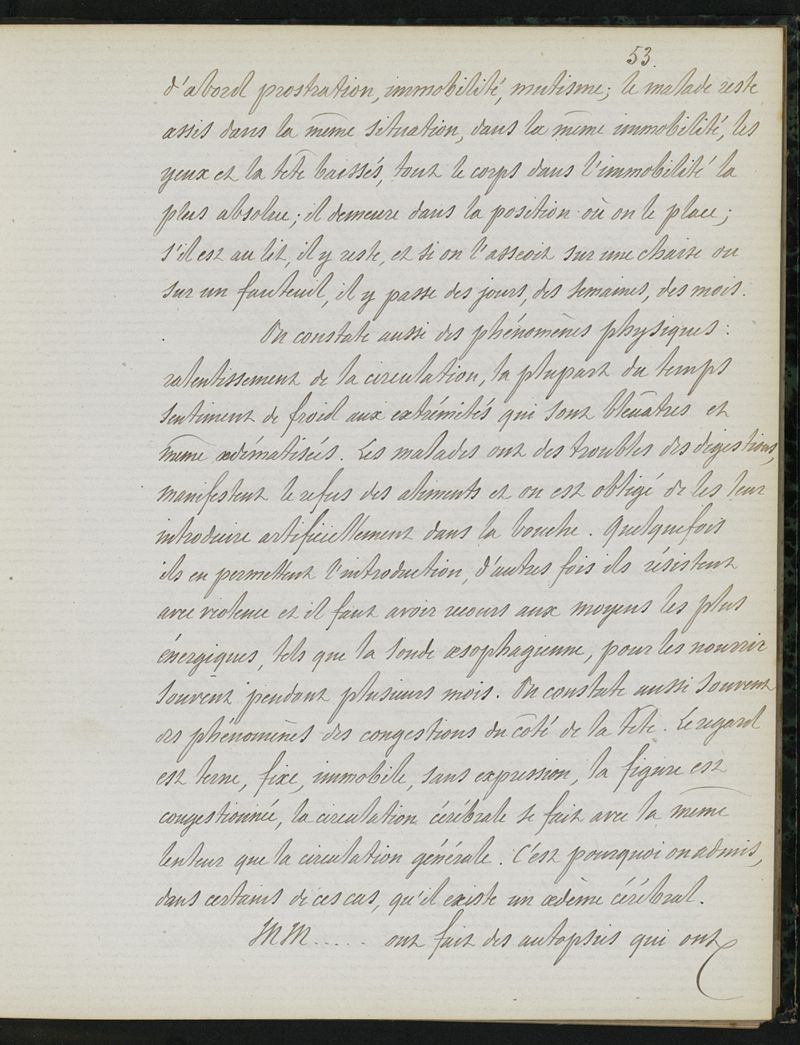 53
d'abord prostration, immobilité, mutisme; le malade reste
assis dans la même situation, dans la même immobilité, les
yeux et la tête baissés, tout le corps dans l'immobilité la
plus absolue; il demeure dans la position où on le place;
s'il est au lit, il y reste, et si on l'asseoit sur une chaise ou
sur un fauteuil, il y passe des jours, des semaines, des mois.
On constate aussi des phénomènes physiques:
ralentissement de la circulation, la plupart du temps
sentiment de froid aux extrémités qui sont bleuâtres et
même œdématisées. Les malades ont des troubles des digestions,
manifestent le refus des aliments et on est obligé de les leur
introduire artificiellement dans la bouche. Quelquefois
ils en permettent l'introduction, d'autres fois ils résistent
avec violence et il faut avoir recours aux moyens les plus
énergiques, tels que la sonde œsophagienne, pour les nourrir
souvent pendant plusieurs mois. On constate aussi souvent
des phénomènes des congestions du côté de la tête. Le regard
est terne, fixe, immobile, sans expression, la figure est
congestionnée, la circulation cérébrale se fait avec la même
lenteur que la circulation générale. C'est pourquoi on admis,
dans certains de ces cas, qu'il existe un œdème cérébral.
MM..... ont fait des autopsies qui ont